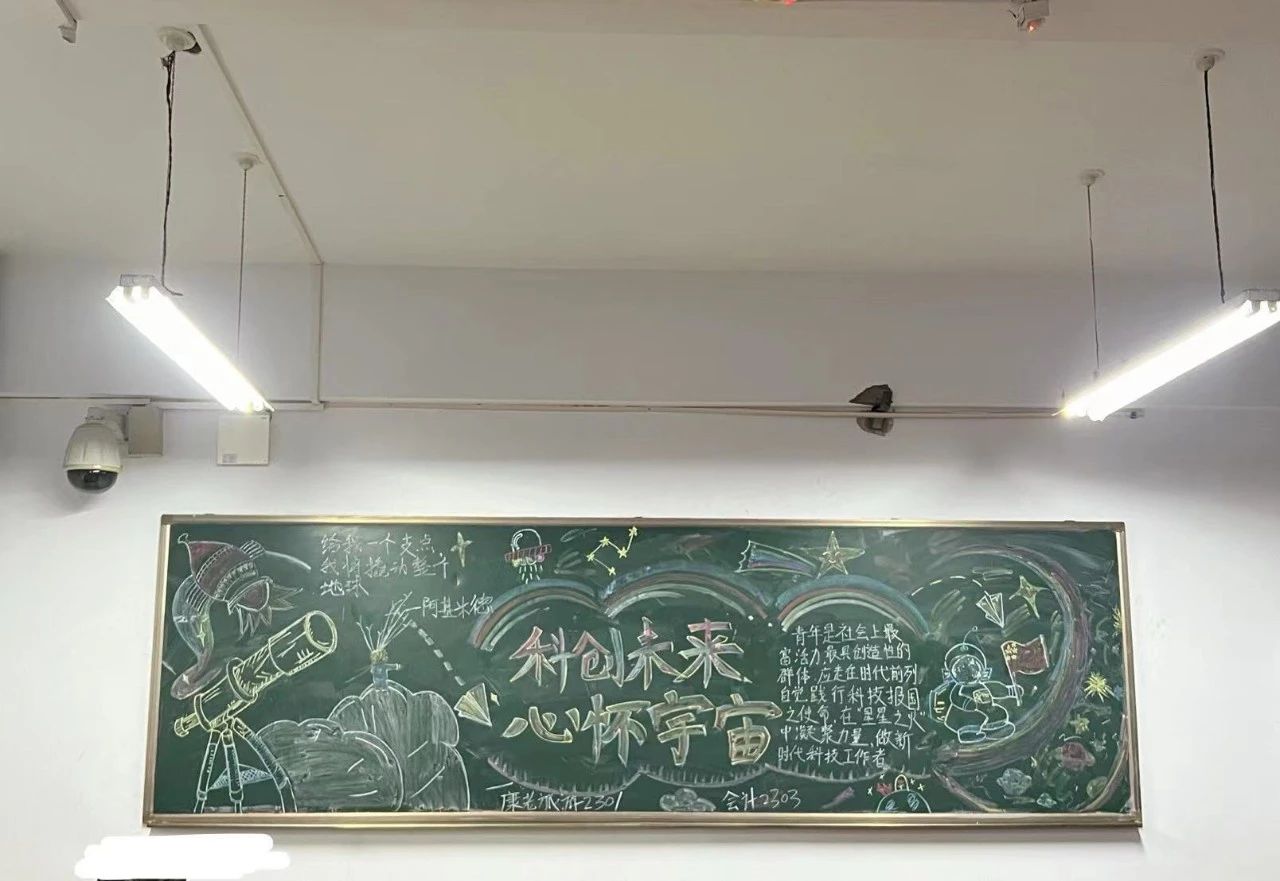 给我一个支点,
我将撬动整个
地球
—阿基米德
科创未来
心怀宇宙
青年是社会上最
富活力、最具创造性的
群体,应走在时代前列
自觉践行科技报国
之使命,在星星之火
中凝聚力量,做新
时代科技工作者
2301
会计2303